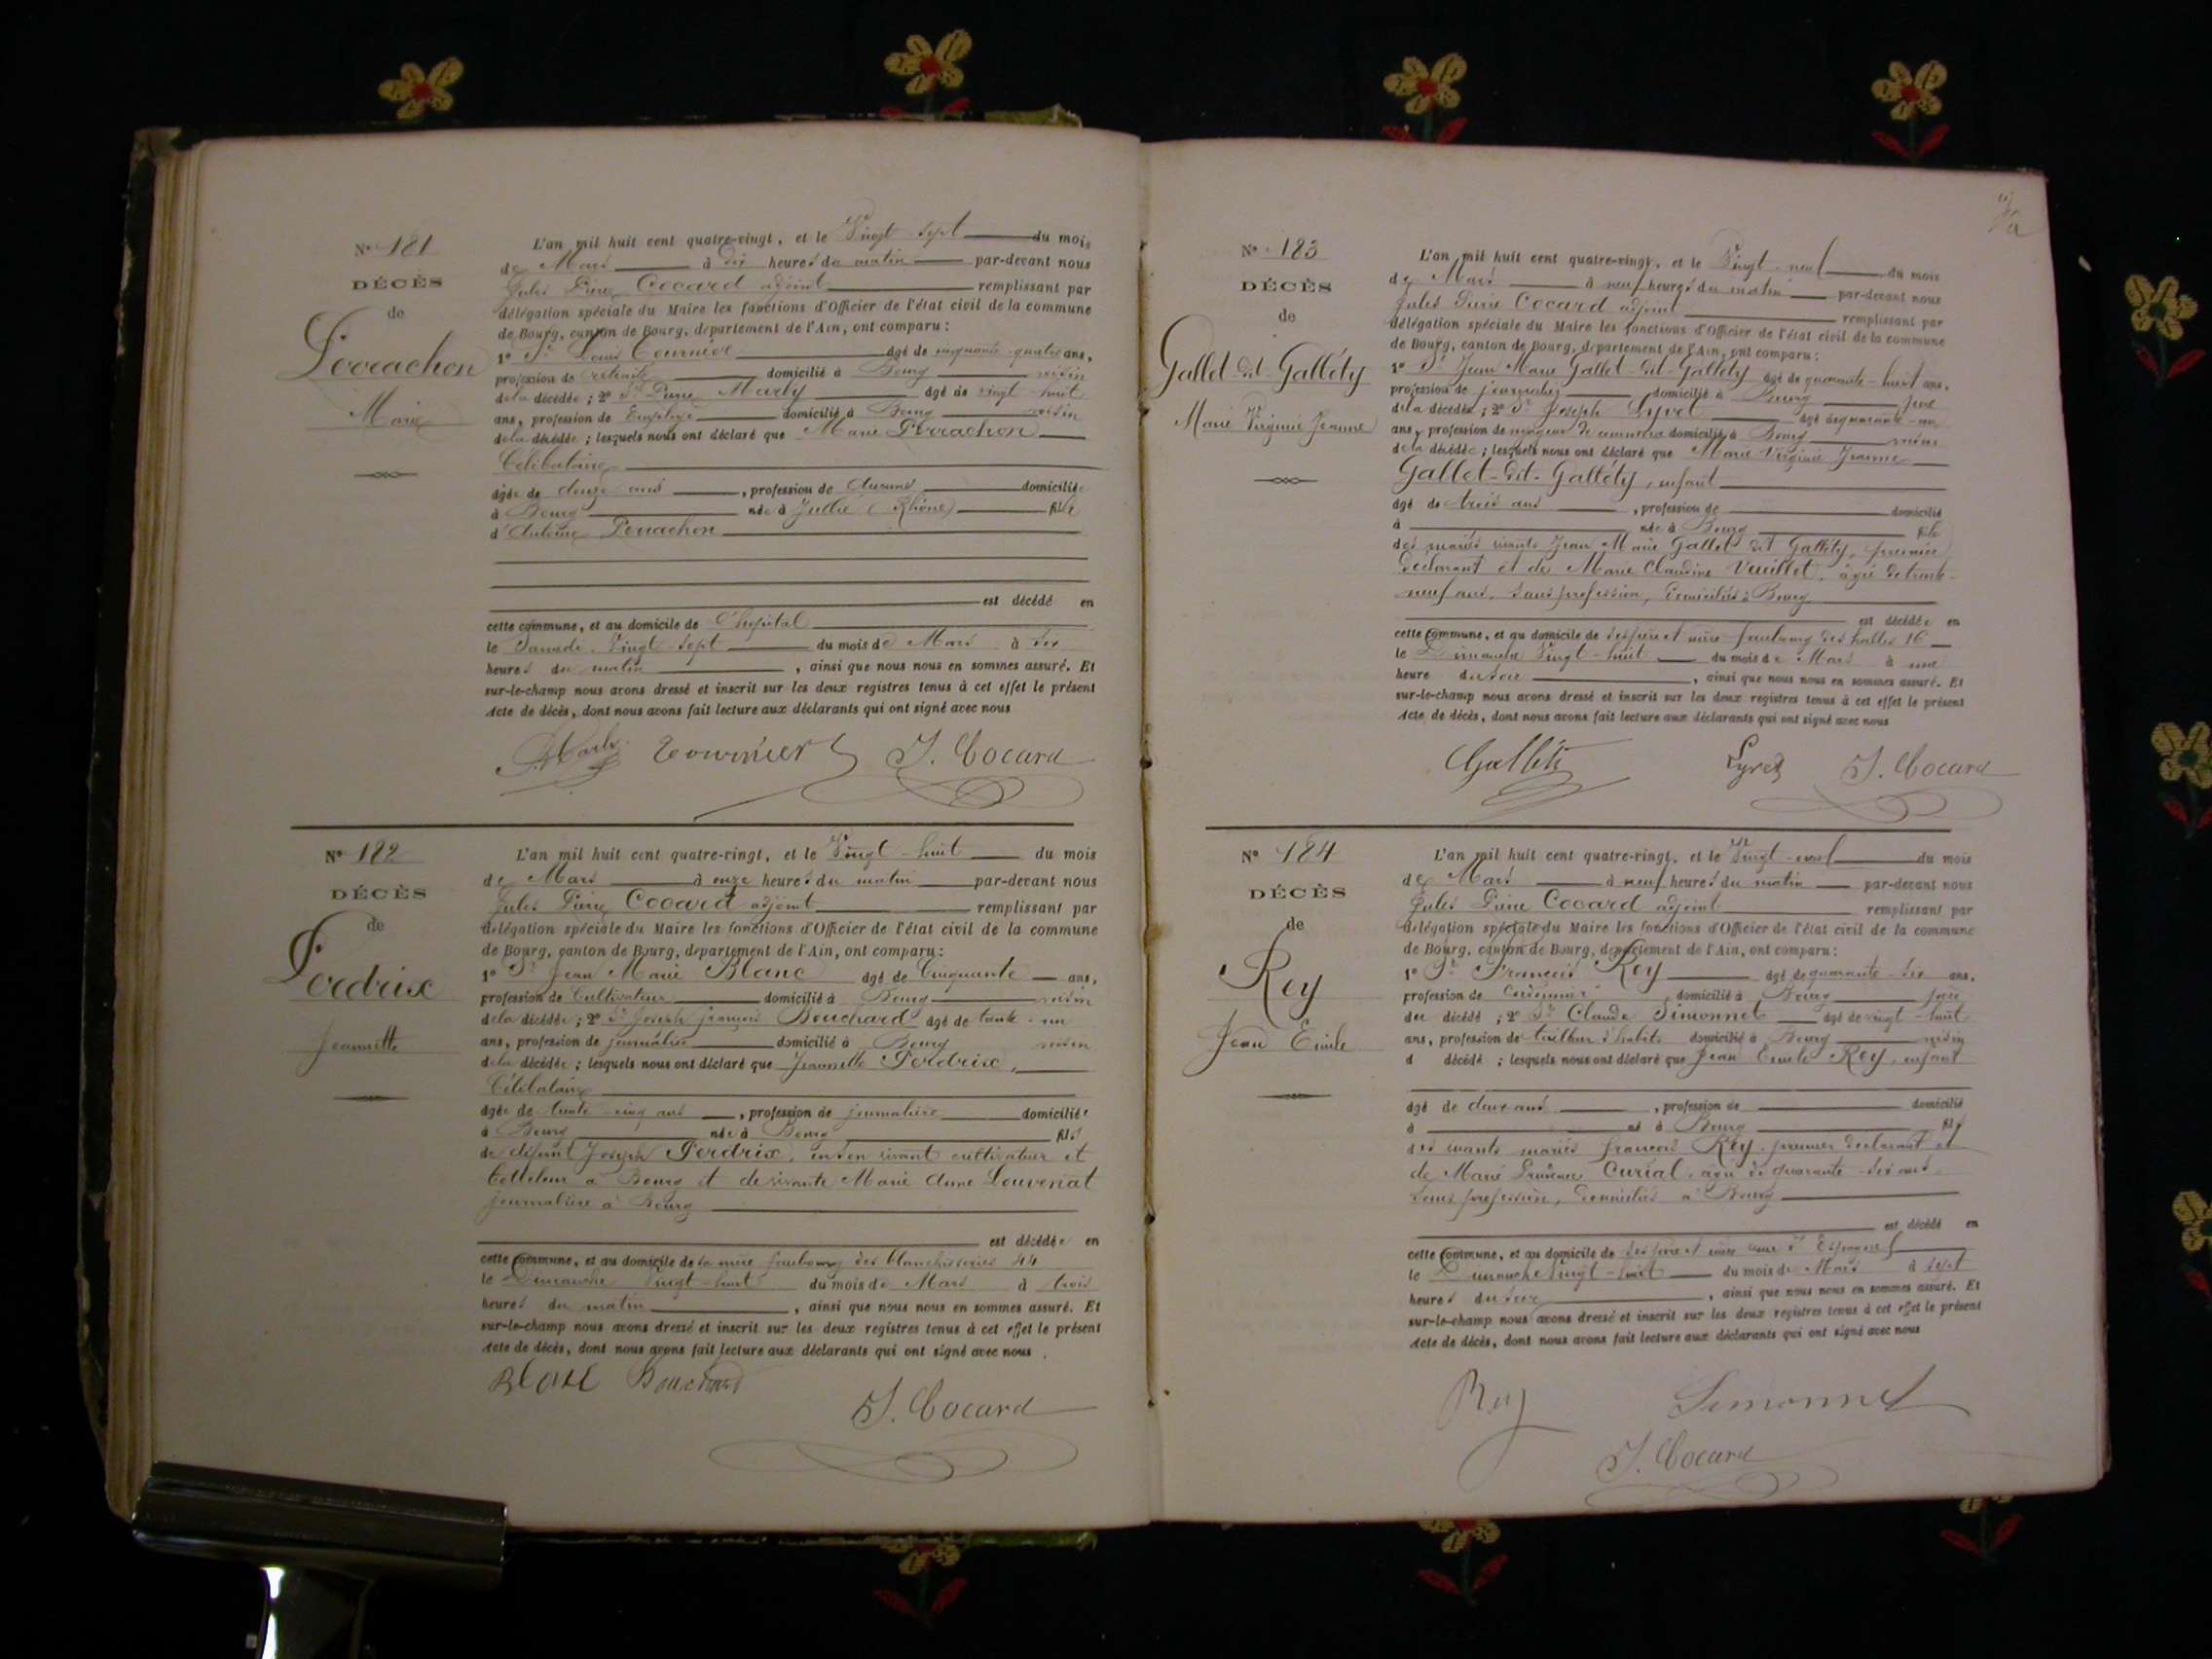 Nº 181
DÉCÈS
de
Perrachon
Marie
L'an mil huit cent quatre-vingt, et le Vingt-sept du mois
de Mars à dix heures du matin par-devant nous
Jules Pierre Cocard adjoint remplissant par
délégation spéciale du Maire les fonctions d'Officier de l'état civil de la commune
de Bourg, canton de Bourg, département de l'Ain, ont comparu :
1º Sr Louis Tournier âgé de cinquante-quatre ans,
profession de retraité domicilié à Bourg voisin
de la décédée ; 2º Sr Pierre Marly âgé de vingt-huit
ans, profession de Employé domicilié à Bourg voisin
de la décédée ; lesquels nous ont déclaré que Marie Perrachon
Célibataire
âgée de douze ans, profession de domiciliée
à Bourg née à Jullié (Rhône) fille
d'Antoine Perrachon
est décédé en
cette commune, et au domicile de l'hôpital
le Samedi Vingt-sept du mois de Mars à six
heures du matin, ainsi que nous nous en sommes assuré. Et
sur-le-champ nous avons dressé et inscrit sur les deux registres tenus à cet effet le présent
Acte de décès, dont nous avons fait lecture aux déclarants qui ont signé avec nous
P. Marly Tournier J. Cocard
Nº 182
DÉCÈS
de
Perdrix
Jeannette
L'an mil huit cent quatre-vingt, et le Vingt-huit du mois
de Mars à onze heures du matin par-devant nous
Jules Pierre Cocard adjoint remplissant par
délégation spéciale du Maire les fonctions d'Officier de l'état civil de la commune
de Bourg, canton de Bourg, département de l'Ain, ont comparu :
1º Sr Jean Marie Blanc âgé de Cinquante ans,
profession de Cultivateur domicilié à Bourg voisin
de la décédée ; 2º Sr Joseph François Bouchard âgé de trente-un
ans, profession de journalier domicilié à Bourg voisin
de la décédée ; lesquels nous ont déclaré que Jeannette Perdrix,
Célibataire
âgée de trente-cinq ans, profession de journalière domiciliée
à Bourg née à Bourg fille
de défunt Joseph Perdrix, en son vivant cultivateur et
batteleur à Bourg et de vivante Marie Anne Louvenat
journalière à Bourg
est décédée en
cette commune, et au domicile de sa mère faubourg des blanchisseries 44
le Dimanche Vingt-huit du mois de Mars à trois
heures du matin, ainsi que nous nous en sommes assuré. Et
sur-le-champ nous avons dressé et inscrit sur les deux registres tenus à cet effet le présent
Acte de décès, dont nous avons fait lecture aux déclarants qui ont signé avec nous.
Blanc Bouchard
J. Cocard
Nº 183
DÉCÈS
de
Gallet-dit-Galléty
Marie Virginie Jeanne
L'an mil huit cent quatre-vingt, et le Vingt-neuf du mois
de Mars à neuf heures du matin par-devant nous
Jules Pierre Cocard adjoint remplissant par
délégation spéciale du Maire les fonctions d'Officier de l'état civil de la commune
de Bourg, canton de Bourg, département de l'Ain, ont comparu :
1º Sr Jean Marie Gallet-dit-Galléty âgé de quarante-huit ans,
profession de journalier domicilié à Bourg père
de la décédée ; 2º Sr Joseph Lyvet âgé de quarante-un
ans, profession de voyageur de commerce domicilié à Bourg voisin
de la décédée ; lesquels nous ont déclaré que Marie Virginie Jeanne
Gallet-dit-Galléty, enfant
âgé de trois ans, profession de domicilié
à née à Bourg fille
des mariés vivants Jean Marie Gallet dit Galléty, premier
déclarant et de Marie Claudine Veuillet, âgée de trente-
neuf ans, sans profession, domiciliés à Bourg
est décédée en
cette commune, et au domicile de ses père et mère faubourg des halles 16
le Dimanche Vingt-huit du mois de Mars à une
heure du soir, ainsi que nous nous en sommes assuré. Et
sur-le-champ nous avons dressé et inscrit sur les deux registres tenus à cet effet le présent
Acte de décès, dont nous avons fait lecture aux déclarants qui ont signé avec nous
Lyvet J. Cocard
Nº 184
DÉCÈS
de
Rey
Jean Emile
L'an mil huit cent quatre-vingt, et le Vingt-neuf du mois
de Mars à neuf heures du matin par-devant nous
Jules Pierre Cocard adjoint remplissant par
délégation spéciale du Maire les fonctions d'Officier de l'état civil de la commune
de Bourg, canton de Bourg, département de l'Ain, ont comparu :
1º Sr François Rey âgé de quarante-six ans,
profession de cordonnier domicilié à Bourg père
du décédé ; 2º Sr Claude Simonnet âgé de vingt-huit
ans, profession de tailleur d'habits domicilié à Bourg voisin
d décédé ; lesquels nous ont déclaré que Jean Emile Rey, enfant
âgé de deux ans, profession de domicilié
à né à Bourg fils
des vivants mariés François Rey premier déclarant et
de Marie Curial, âgée de quarante-six ans,
sans profession, domiciliés à Bourg
est décédé en
cette commune, et au domicile de ses père et mère rue d'Espagne
le Dimanche Vingt-huit du mois de Mars à sept
heures du soir, ainsi que nous nous en sommes assuré. Et
sur-le-champ nous avons dressé et inscrit sur les deux registres tenus à cet effet le présent
Acte de décès, dont nous avons fait lecture aux déclarants qui ont signé avec nous
Rey Simonnet
J. Cocard